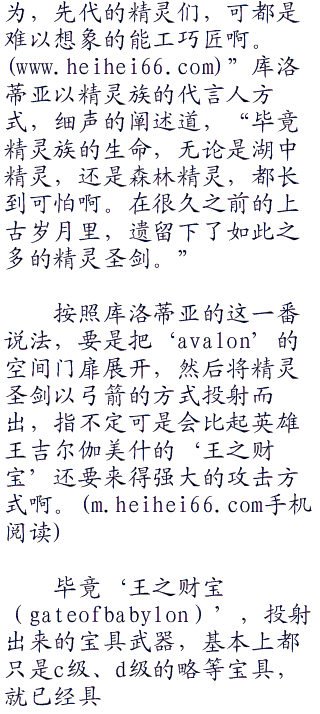 为，先代的精灵们，可都是
难以想象的能工巧匠啊。
(www.heihei66.com)”库洛
蒂亚以精灵族的代言人方
式，细声的阐述道，“毕竟
精灵族的生命，无论是湖中
精灵，还是森林精灵，都长
到可怕啊。在很久之前的上
古岁月里，遗留下了如此之
多的精灵圣剑。”
按照库洛蒂亚的这一番
说法，要是把‘avalon’的
空间门扉展开，然后将精灵
圣剑以弓箭的方式投射而
出，指不定可是会比起英雄
王吉尔伽美什的‘王之财
宝’还要来得强大的攻击方
式啊。(m.heihei66.com手机
阅读)
毕竟‘王之财宝
（gateofbabylon）’，投射
出来的宝具武器，基本上都
只是c级、d级的略等宝具，
就已经具